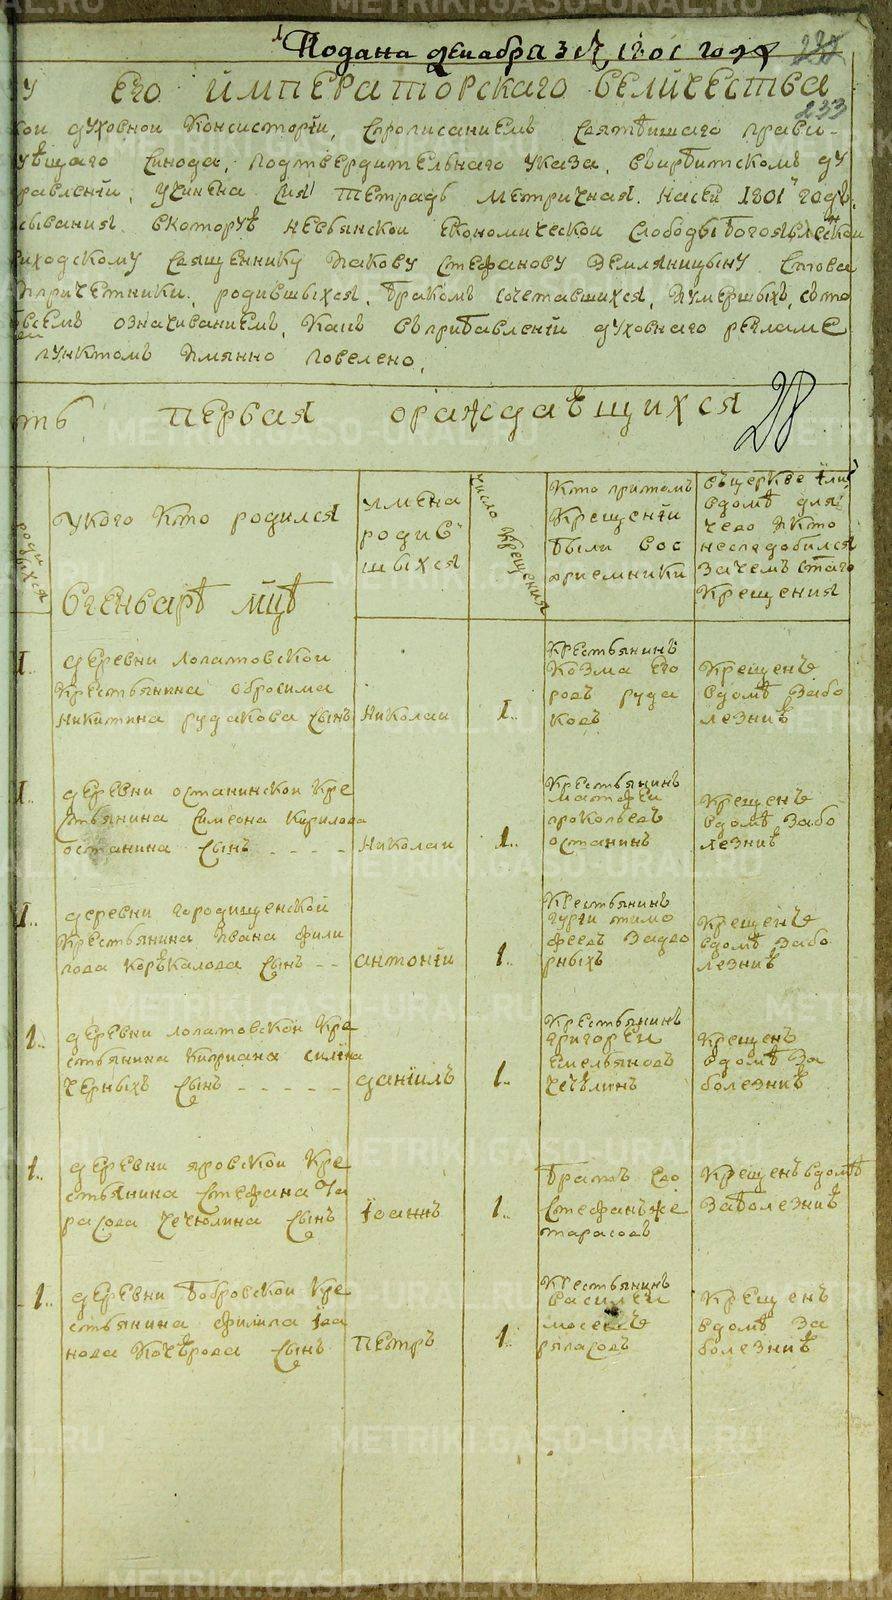 Подана декабря 31 1801 года
233
У ЕГО ИМПЕРАТОРСКАГО ВЕЛИЧЕСТВА
кои духовнои консисторіи, спрописаниемъ святѣишаго прави-
ующаго синода, подтвердительнаго указа, вырбитскомъ ду
равленіи, учинена сия тетрадь метричная. насеи 1801 годъ,
сывания. вкоторуѣ невьянскои економическои слободы богоявленскои
иходскому священнику иакову стефанову земляницыну
ипричетники, родившыхся, бракомъ сочетавшихся, иумершыхъ, съто
всемъ означиваниемъ, какъ въприбавленіи духовнаго регламе
пунктомъ имянно повелено,
ть первая ораждаѣщихся
28
роди
вшыхся
укого кто родился
вгенварѣ мцѣ
имена
родив
шыхся
число крещения
кто притомъ
крещеніи
были вос
приемники
въцеркве или
вдомѣ для
чего икто
несподобился
зачемъ стаго
крещения
1. деревни лопатовскои
крестьянина обросима
никитина рудакова сынъ
николаи
1..
крестьянинъ
козма его
родъ руда
ковъ
крещенъ
вдомѣ забо
лезниѣ
1.. деревни останинскои кре
стьянина симеона кирилова
останина сынъ - - - -
николаи
1..
крестьянинъ
матфеи
прокопьевъ
останинъ
крещенъ
вдомѣ забо
лезниѣ
1.. деревни городищенскои
крестьянина ивана фили
пова коръкалова сынъ - -
антоніи
1..
крестьянинъ
гурги тимо
феевъ задво
рныхъ
крещенъ
вдомѣ забо
лезниѣ
1.. деревни лопатовскои кре
стьянина киприана силина
черныхъ сынъ - - - - -
даніилъ
1..
крестьянинъ
григореи
емельяновъ
чечѣлинъ
крещенъ
вдомѣ за
болезниѣ
1.. деревни яровскои кре
стьянина стефана та
расова чечюлина сынъ
іоаннъ
1..
братъ ево
стефанъже
тарасовъ
крещенъ вдомѣ
заболезниѣ
1.. деревни бобровскои кре
стьянина филипа іва
нова кочѣрова сынъ
петръ
1..
крестьянинъ
василеи
ряпасовъ
крещенъ
вдомѣ за
болезниѣ
METRIKI.GASO-URAL.RU